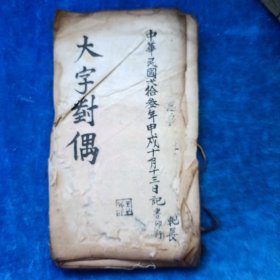 中華民國廿拾叁年甲戌十月十三日記
大字對偶